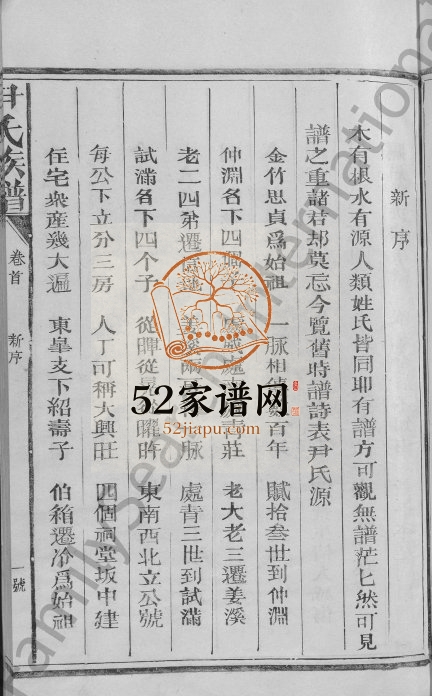 新序
木有根水有源人類姓氏皆同耶有譜方可觀無譜茫匕然可見
譜之重諸君却莫忘今覽舊時譜詩表尹氏源
金竹思貞爲始祖 一脉相 百年 賦拾叁世到仲淵
仲淵各下四 處 處 壽莊 老大老三遷姜溪
老二四弟遷 脉 處青三世到試滿
試滿各下四個子 從暉從 曜昨 東南西北立公號
每公下立分三房 人丁可稱大興旺 四個祠堂坂中建
住宅衆産幾大遍 東皐支下紹壽子 伯箱遷冷爲始祖
尹氏族譜 卷首 新序 一號
52家谱网
52jiapu.com
FamilySearch International